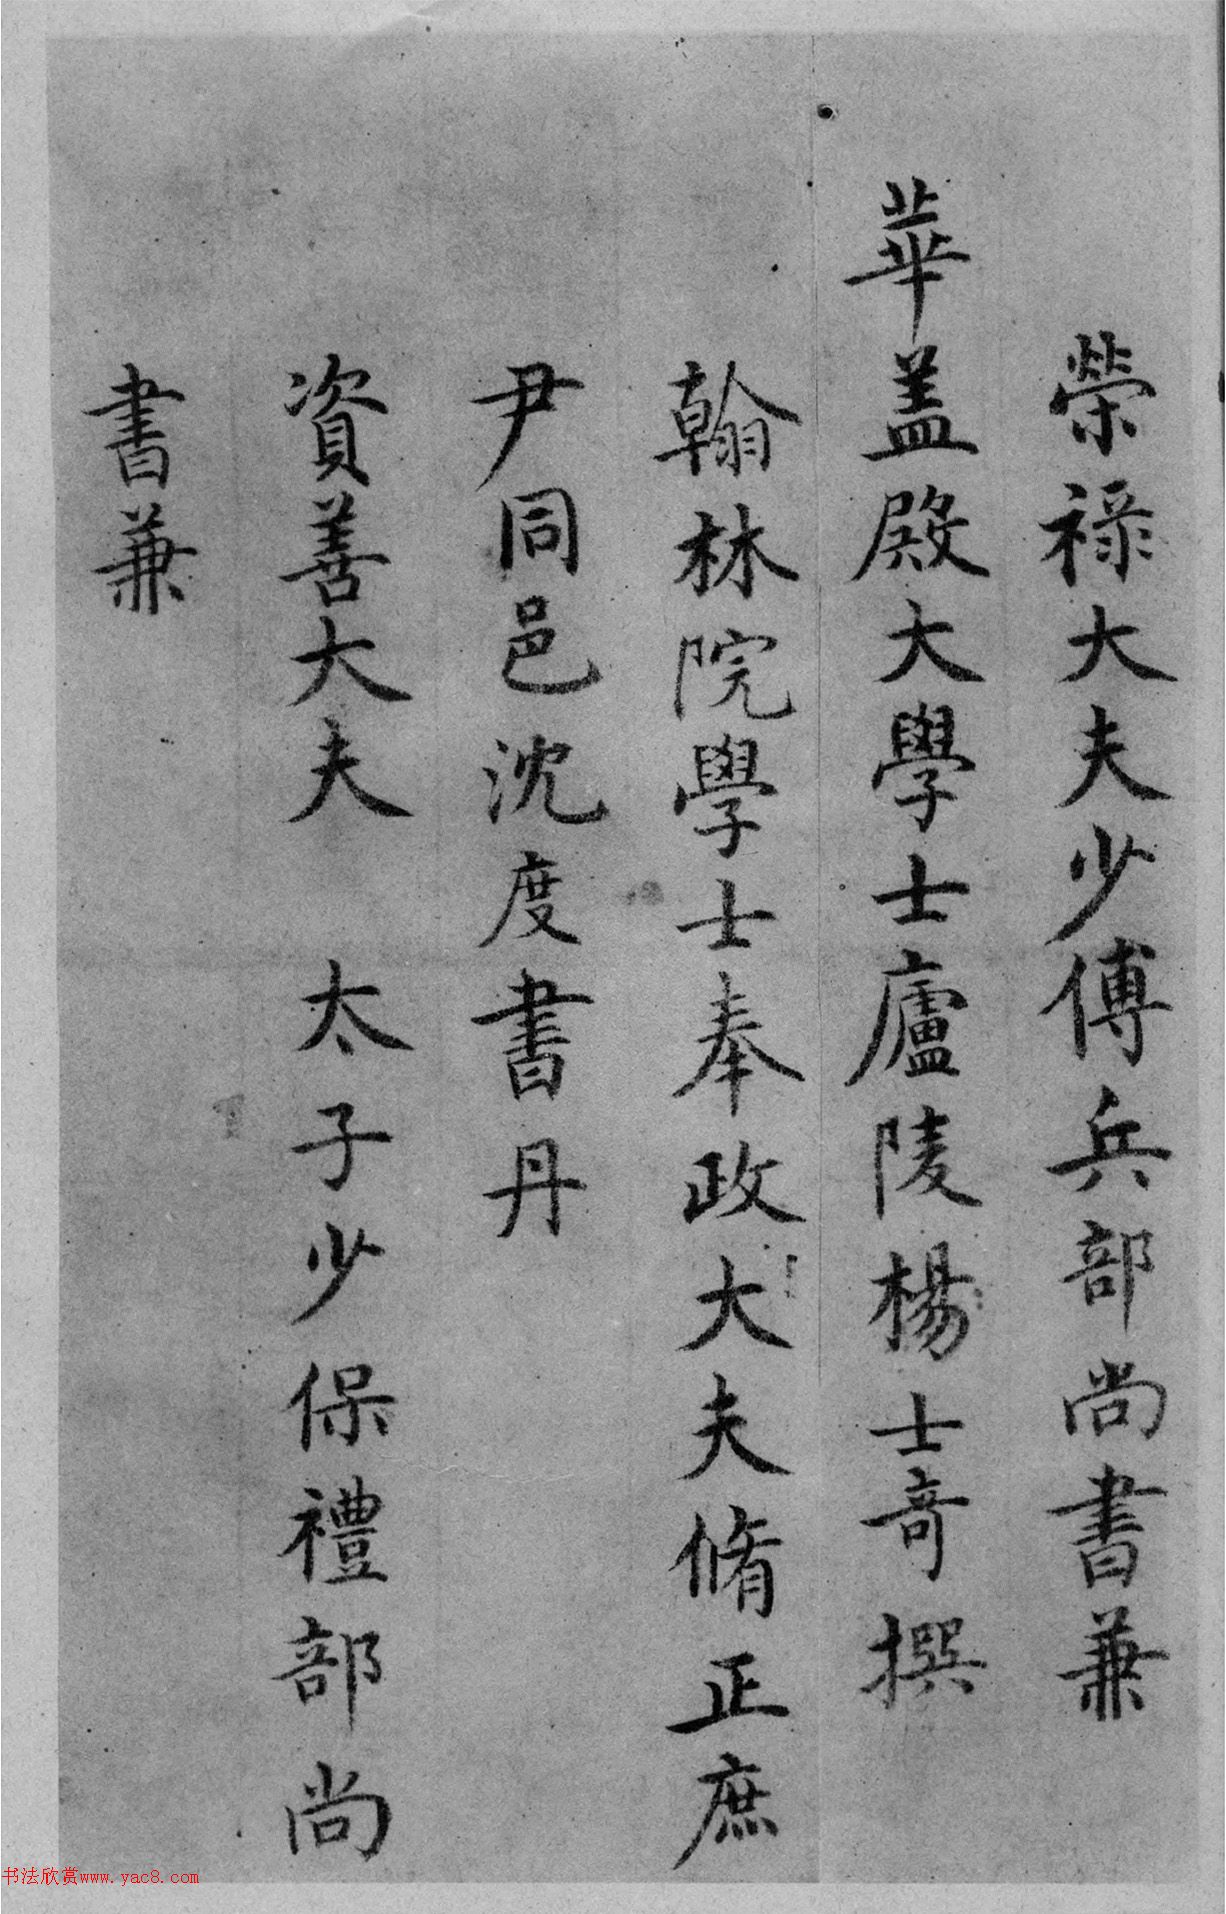 榮祿大夫少傅兵部尚書兼
華盖殿大學士廬陵楊士奇撰
翰林院學士奉政大夫脩正庶
尹同邑沈度書丹
資善大夫 太子少保禮部尚
書兼
书法欣赏www.yac8.com